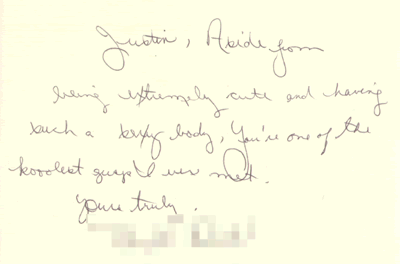 Justin, Aside from
being extremely cute and having
such a sexy body, You're one of the
kooolest guys I'd ever met.
Yours truly.